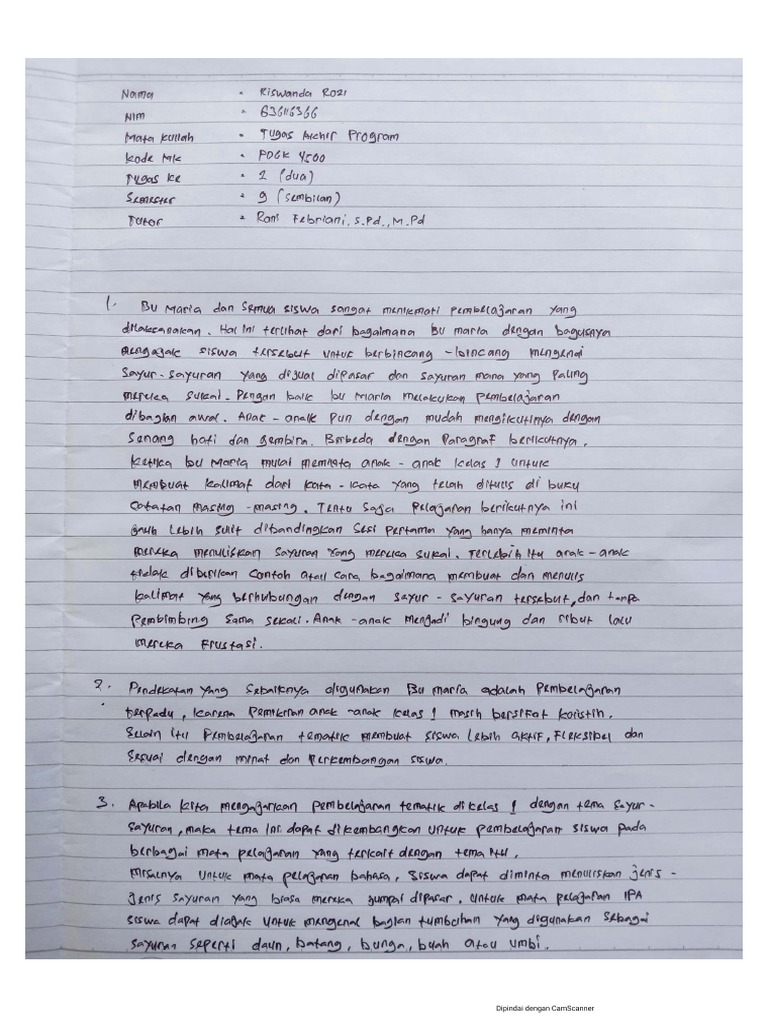 Nama : Riswanda Rozi
NIM : 836116366
Mata Kuliah : Tugas Akhir Program
Kode MK : PDGK 4500
Tugas Ke : 2 (dua)
Semester : 9 (sembilan)
Tutor : Roni Febriani, S.Pd., M.Pd
1. Bu Maria dan semua siswa sangat menikmati pembelajaran yang
dilaksanakan. Hal ini terlihat dari bagaimana Bu Maria dengan bagusnya
mengajak siswa tersebut untuk berbincang-bincang mengenai
sayur-sayuran yang dijual dipasar dan sayuran mana yang paling
mereka sukai. Dengan baik Bu Maria melakukan pembelajaran
dibagian awal. Anak-anak pun dengan mudah mengikutinya dengan
senang hati dan gembira. Berbeda dengan Paragraf berikutnya,
ketika Bu Maria mulai meminta anak-anak kelas 1 untuk
membuat kalimat dari kata-kata yang telah ditulis di buku
catatan masing-masing. Tentu saja pelajaran berikutnya ini
jauh lebih sulit dibandingkan sesi pertama yang hanya meminta
mereka menuliskan sayuran yang mereka sukai. Terlebih itu anak-anak
tidak diberikan contoh atau cara bagaimana membuat dan menulis
kalimat yang berhubungan dengan sayur-sayuran tersebut, dan tanpa
pembimbing sama sekali. Anak-anak menjadi bingung dan ribut lalu
mereka frustasi.
2. Pendekatan yang sebaiknya digunakan Bu Maria adalah Pembelajaran
terpadu, karena pemikiran anak-anak kelas 1 masih bersifat koistih.
Selain itu Pembelajaran tematik membuat siswa lebih aktif, fleksibel dan
sesuai dengan minat dan perkembangan siswa.
3. Apabila kita mengajarkan pembelajaran tematik di kelas 1 dengan tema sayur-
sayuran, maka tema ini dapat dikembangkan untuk pembelajaran siswa pada
berbagai mata pelajaran yang terkait dengan tema itu.
Misalnya untuk mata pelajaran bahasa, siswa dapat diminta menuliskan jenis-
jenis sayuran yang biasa mereka jumpai dipasar. Untuk mata pelajaran IPA
siswa dapat diajak untuk mengenal bagian tumbuhan yang digunakan sebagai
sayuran seperti daun, batang, bunga, buah atau umbi.
Dipindai dengan CamScanner